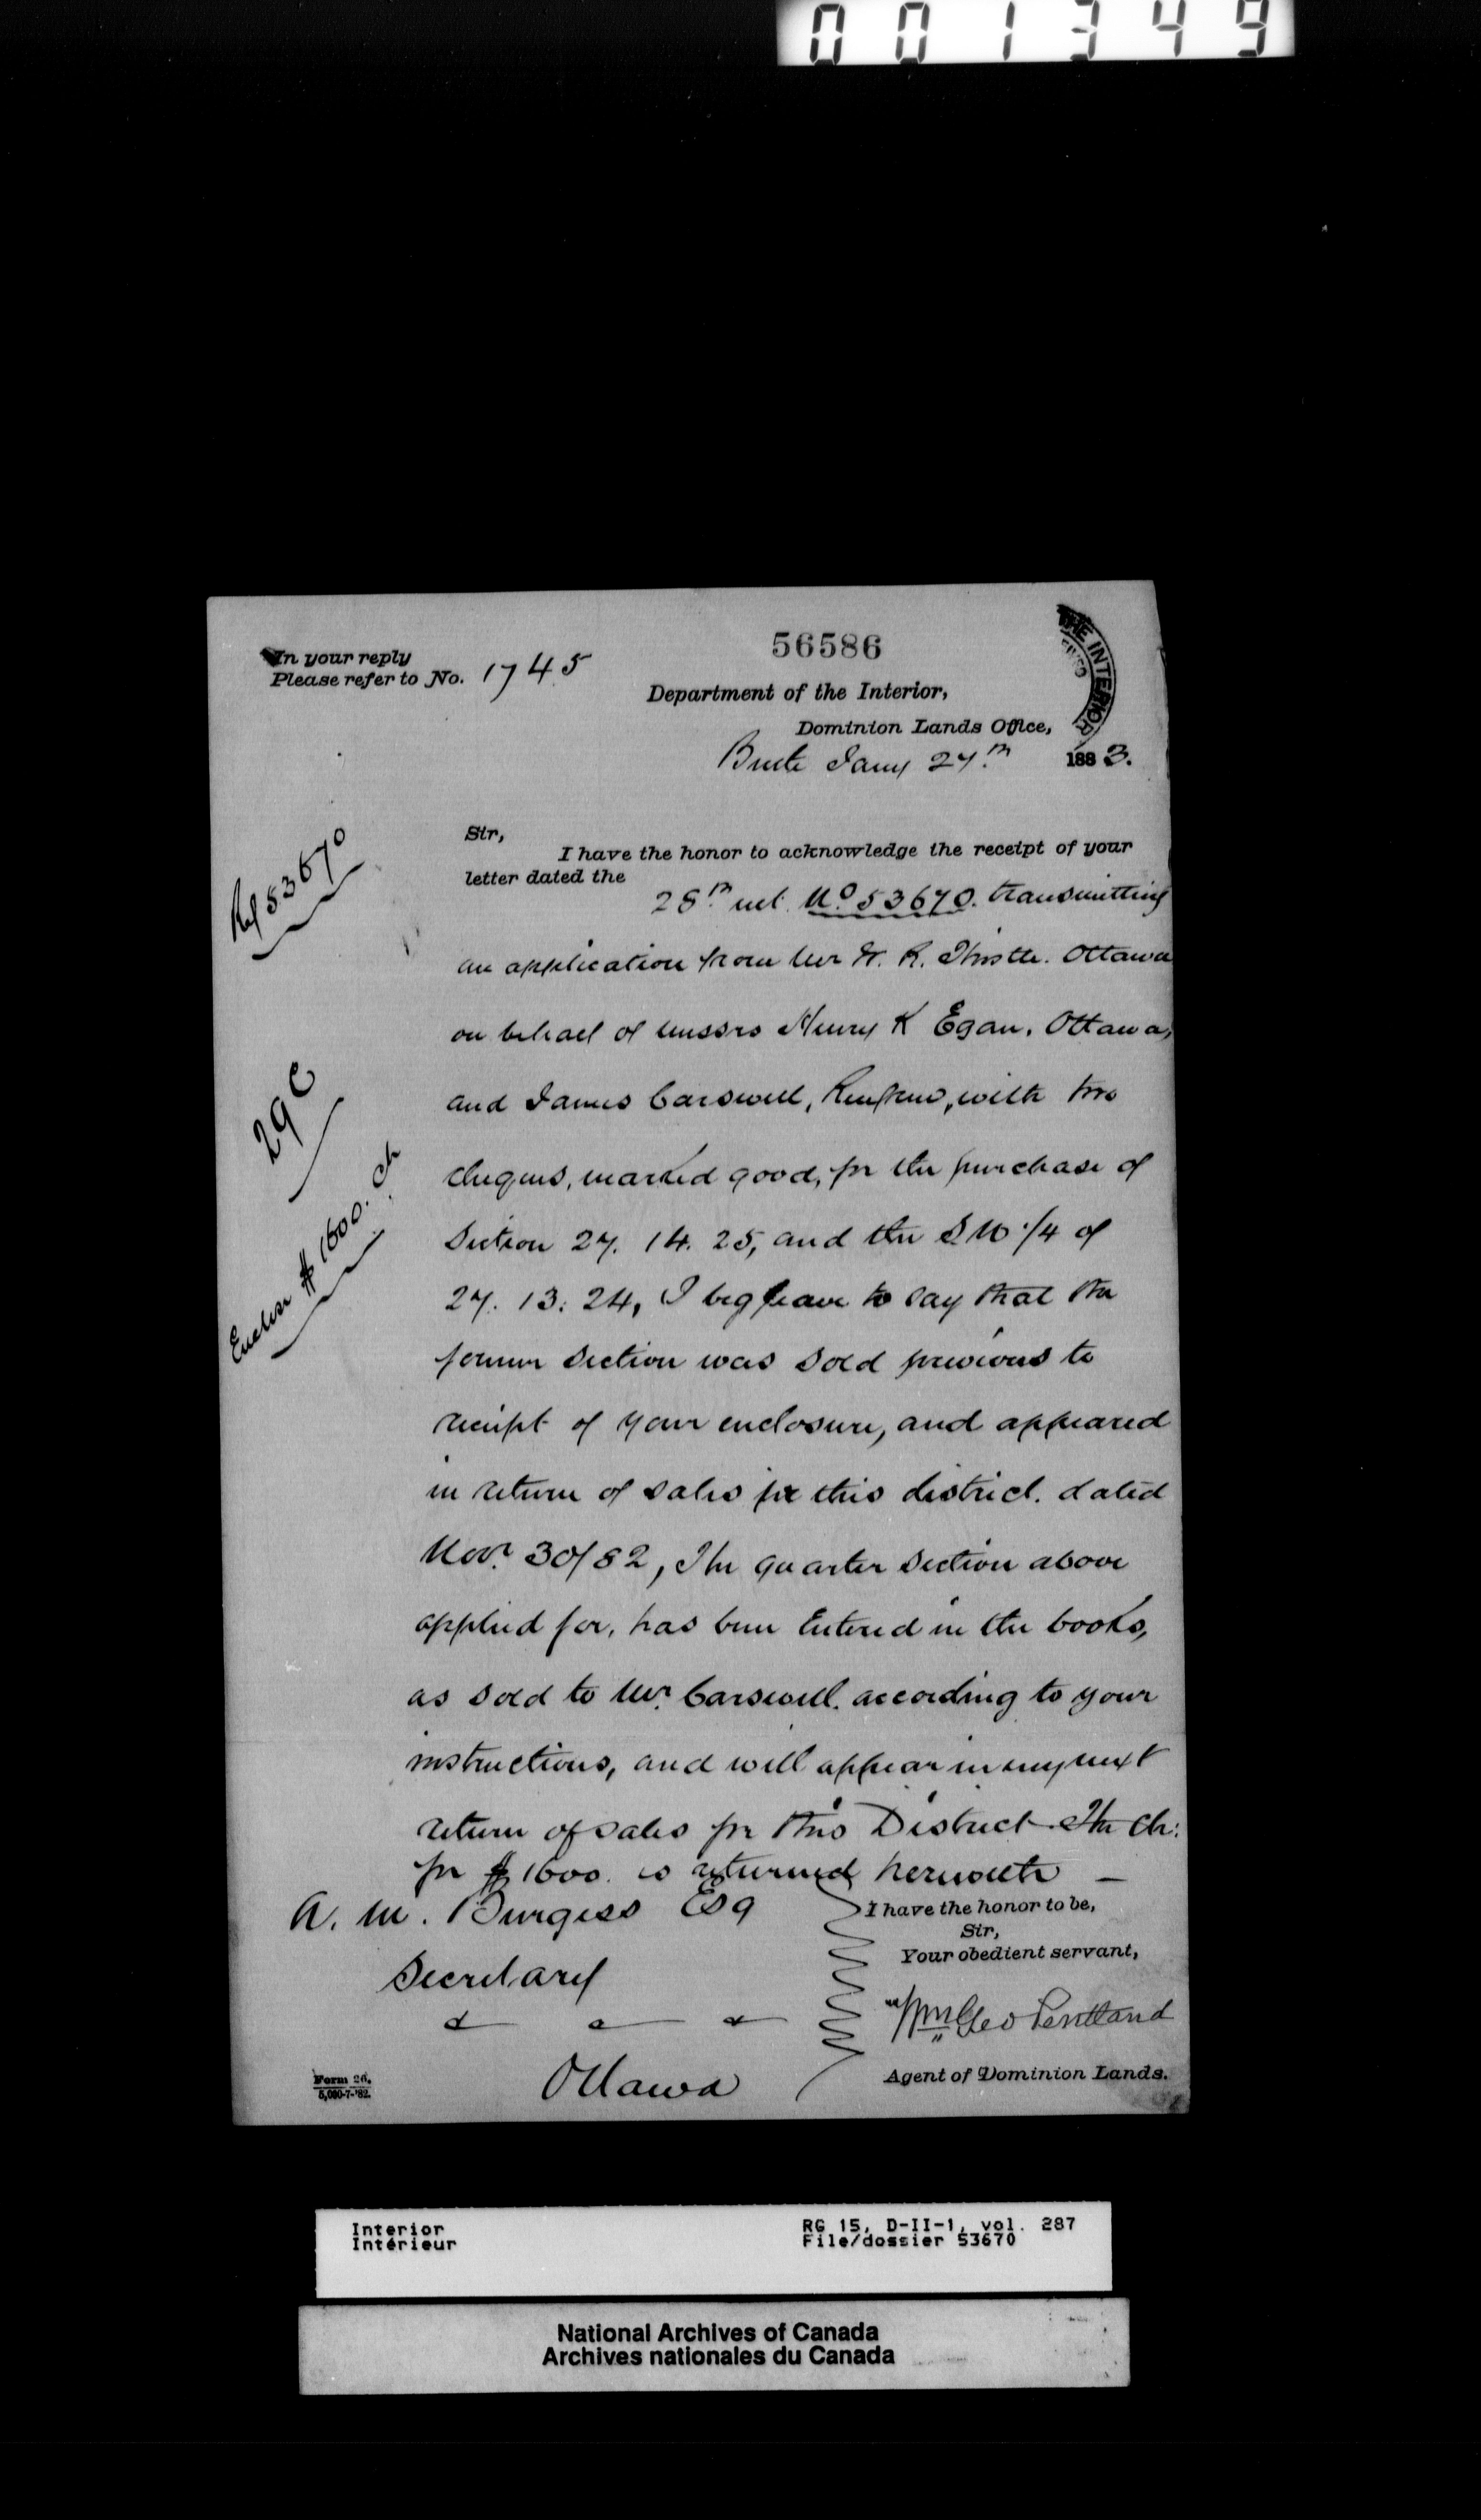 001349
56586
In your reply
Please refer to No. 1745
THE INTERIOR
Department of the Interior,
Dominion Lands Office,
Birtle Jany 27th 1883.
Ref 53670
29 C
Enclose $1600. ch
Sir,
I have the honor to acknowledge the receipt of your
letter dated the
28th ult. No 53670. transmitting
an application from Mr W. R. Thistle. Ottawa
on behalf of messrs Henry K Egan, Ottawa,
and James Carswell, Renfrew, with two
cheques, marked good, for the purchase of
Section 27. 14. 25, and the S W 1/4 of
27. 13. 24, I beg leave to say that the
former section was sold previous to
receipt of your enclosure, and appeared
in return of sales for this district. dated
Novr 30/82, The quarter section above
applied for, has been Entered in the books,
as sold to Mr. Carswell. according to your
instructions, and will appear in my next
return of sales for this District The Ch:
for $1600. is returned herewith —
A. M. Burgess Esq
Secretary
Ottawa
I have the honor to be,
Sir,
Your obedient servant,
Wm Geo Pentland
Agent of Dominion Lands.
Form 26.
5,000-7-'82.
Interior
Intérieur
RG 15, D-II-1, vol. 287
File/dossier 53670
National Archives of Canada
Archives nationales du Canada